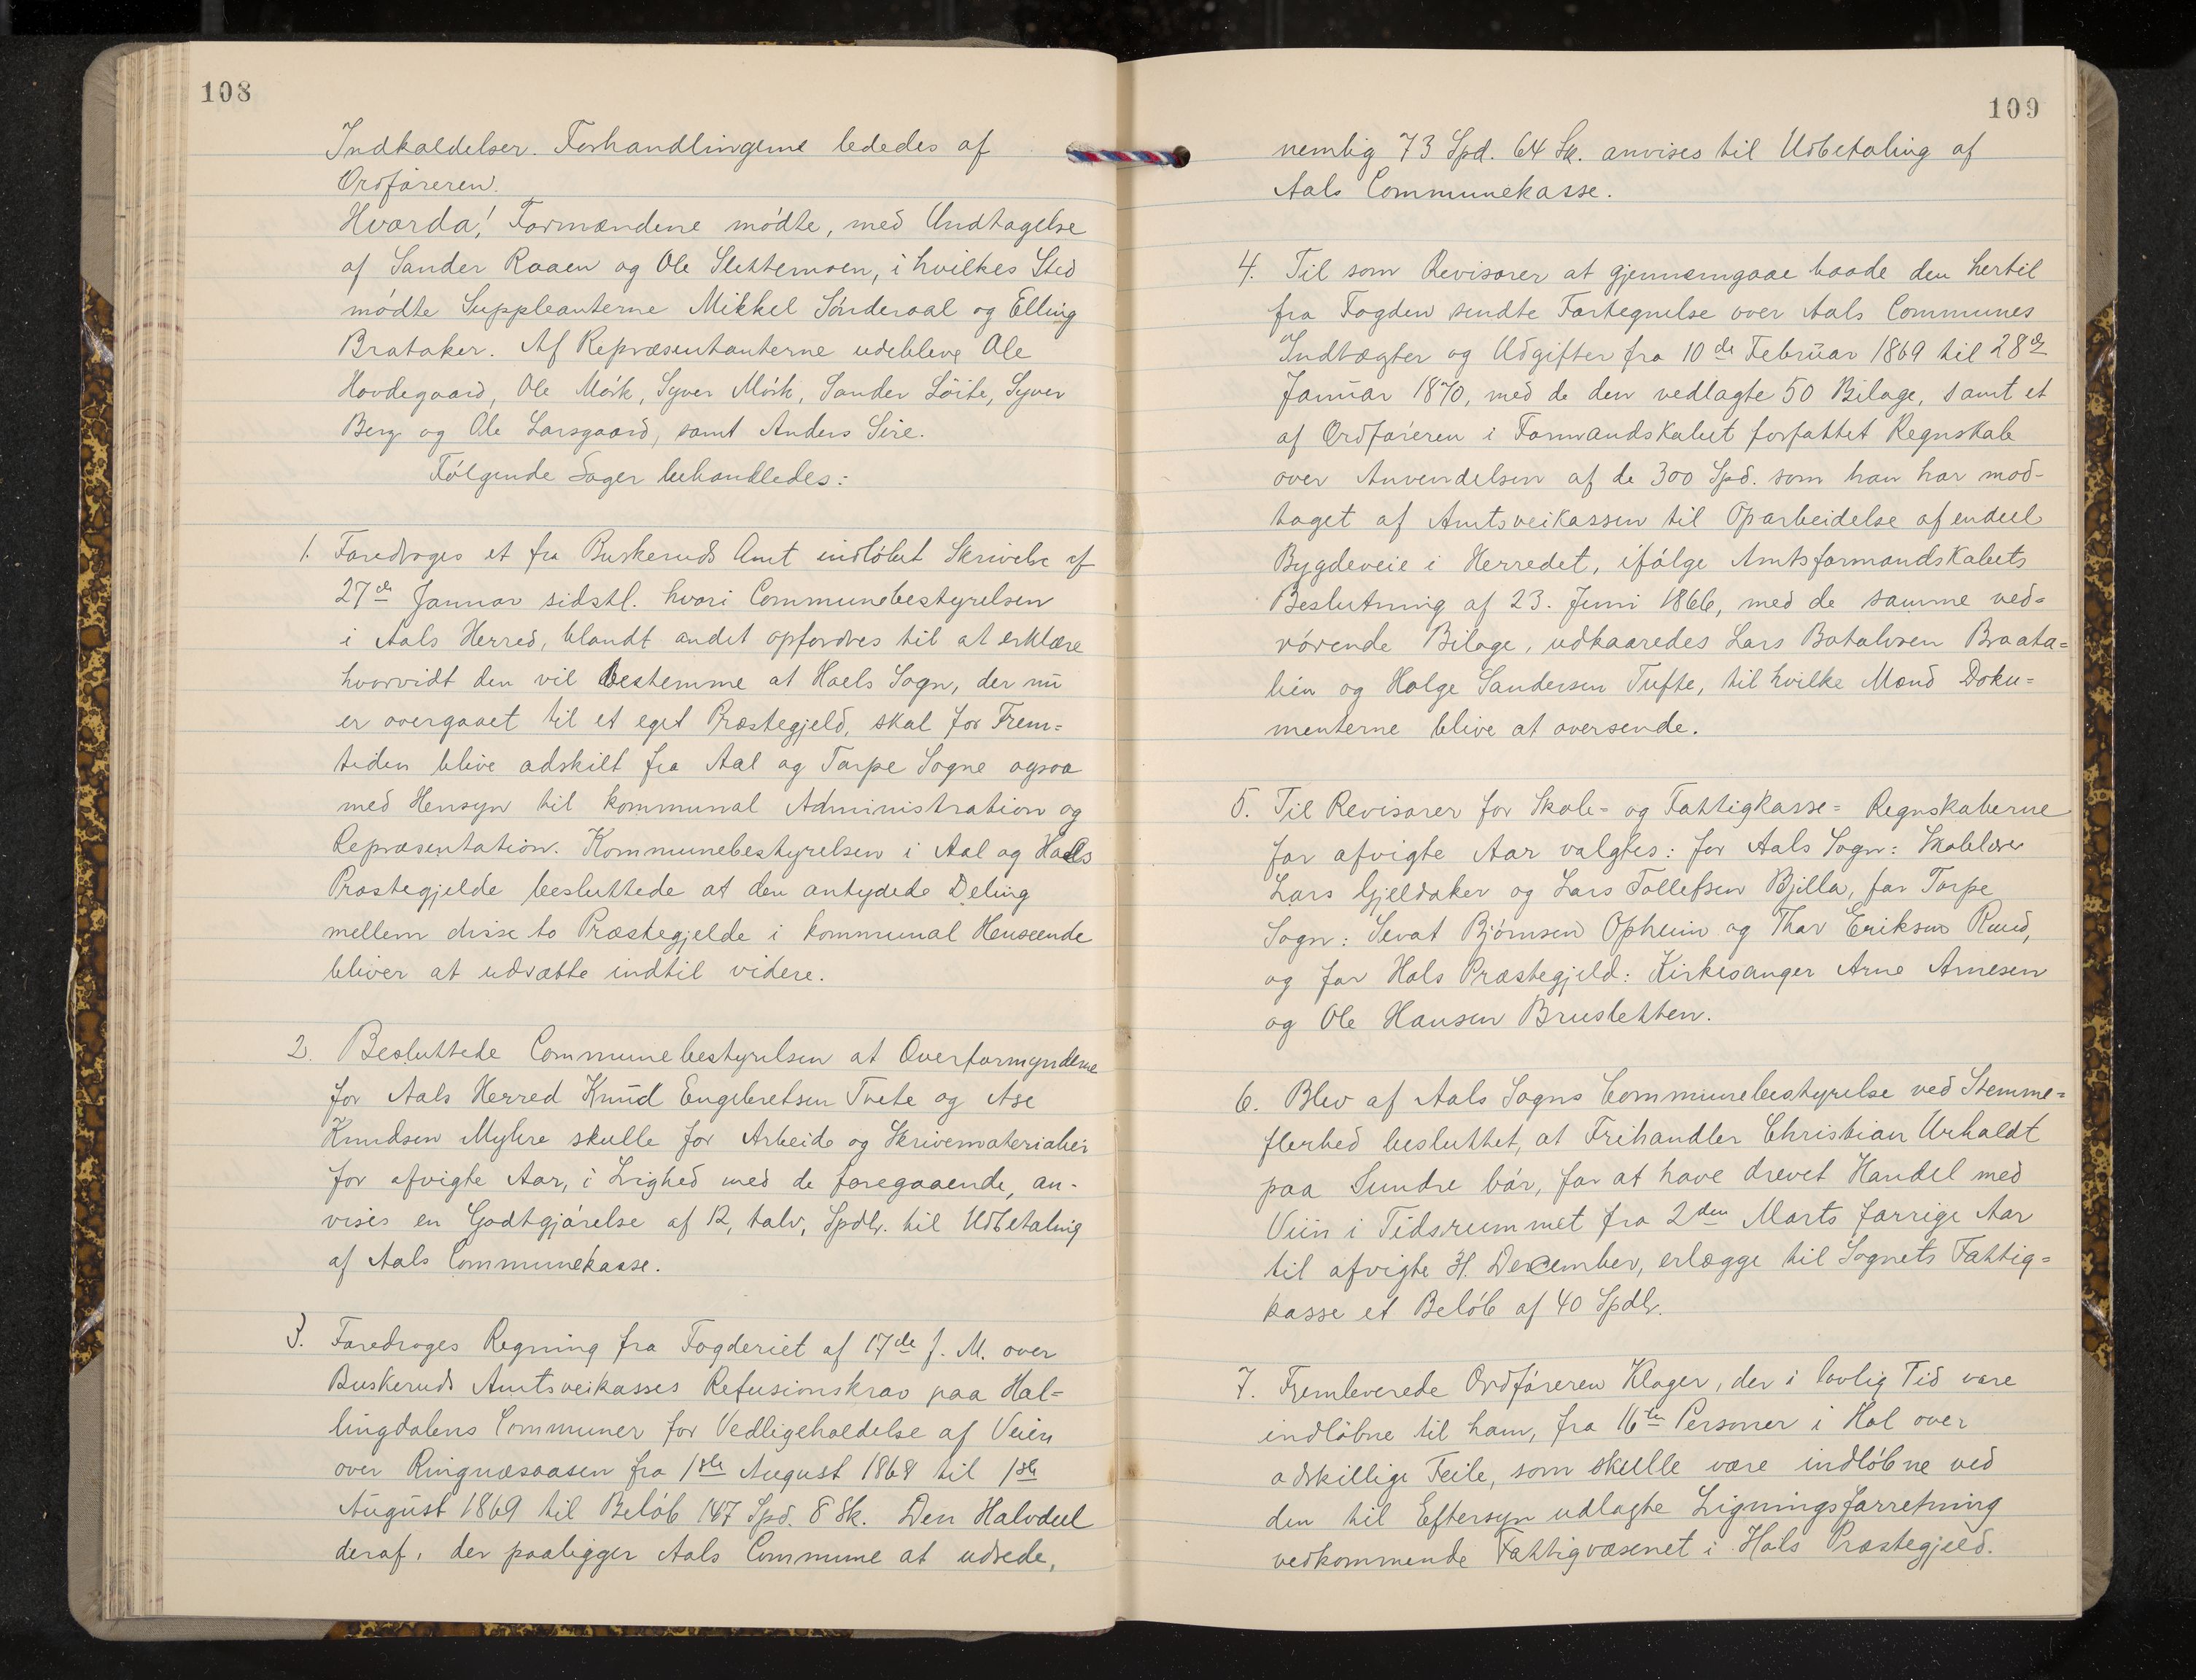 108
Indkaldelser. Forhandlingerne lededes af
Ordføreren.
Hvorda! Formændene mødte, med Undtagelse
af Sander Raaen og Ole Slettemoen, i hvilkes Sted
mødte Suppleanterne Mikkel Sønderaal og Elling
Brataker. Af Repræsentanterne udebleve Ole
Hovdegaard, Ole Mørk, Syver Mørk, Sander Löite, Syver
Berg og Ole Larsgaard, samt Anders Sire.
Følgende Sager behandledes:
1. Foredroges et fra Buskeruds Amt indløbet Skrivelse af
27de Januar sidstl. hvori Communebestyrelsen
i Aals Herred, blandt andet opfordres til at erklære
hvorvidt den vil bestemme at Hols Sogn, der nu
er overgaaet til et eget Præstegjeld, skal for Frem=
tiden blive adskilt fra Aal og Torpe Sogne ogsaa
med Hensyn til kommunal Administration og
Repræsentation. Kommunebestyrelsen i Aal og Hols
Præstegjelde besluttede at den antydede Deling
mellem disse to Præstegjelde i kommunal Henseende
bliver at udsætte indtil videre.
2. Besluttede Communebestyrelsen at Overformynderne
for Aals Herred Knud Engebretsen Tveto og Ase
Knudsen Myhre skulle for Arbeide og Skrivematerialier
for afvigte Aar, i Lighed med de foregaaende, an-
vises en Godtgjørelse af 12, tolv, Spdlr. til Udbetaling
af Aals Communekasse.
3. Foredroges Regning fra Fogderiet af 17de f. M. over
Buskeruds Amtsveikasses Refusionskrav paa Hal=
lingdalens Communer for Vedligeholdelse af Veien
over Ringnæsaasen fra 1ste August 1868 til 1ste
August 1869 til Beløb 147 Spd. 8 Sk. Den Halvdeel
deraf, der paaligger Aals Commune at udrede,
109
nemlig 73 Spd. 64 Sk. anvises til Udbetaling af
Aals Communekasse.
4. Til som Revisorer at gjennemgaae baade den hertil
fra Fogden sendte Fortegnelse over Aals Communes
Indtægter og Udgifter fra 10de Februar 1869 til 28de
Januar 1870, med de den vedlagte 50 Bilage, samt et
af Ordføreren i Formandskabet forfattet Regnskab
over Anvendelsen af de 300 Spd. som han har mod-
taget af Amtsveikassen til Oparbeidelse af endeel
Bygdeveie i Herredet, ifølge Amtsformandskabets
Beslutning af 23. Juni 1866, med de samme ved=
rørende Bilage, udkaaredes Lars Botolvsen Braata=
lien og Holge Sandersen Tufte, til hvilke Mænd Doku=
menterne blive at oversende.
5. Til Revisorer for Skole= og Fattigkasse= Regnskaberne
for afvigte Aar valgtes: for Aals Sogn: Skolelærer
Lars Gjeldaker og Lars Tollefsen Bjella, for Torpe
Sogn: Sevat Bjørnsen Opheim og Thor Eriksen Ruud,
og for Hols Præstegjeld: Kirkesanger Arne Arnesen
og Ole Hansen Brusletten.
6. Blev af Aals Sogns Communebestyrelse ved Stemme=
flerhed besluttet, at Frihandler Christian Urholdt
paa Sundre bør, for at have drevet Handel med
Viin i Tidsrummet fra 2den Marts forrige Aar
til afvigte 31. December, erlægge til Sognets Fattig=
kasse et Beløb af 40 Spdlr.
7. Fremleverede Ordføreren Klager, der i lovlig Tid vare
indløbne til ham, fra 16ten Personer i Hol over
adskillige Feile, som skulle være indløbne ved
den til Eftersyn udlagte Ligningsforretning
vedkommende Fattigvæsenet i Hols Præstegjeld.